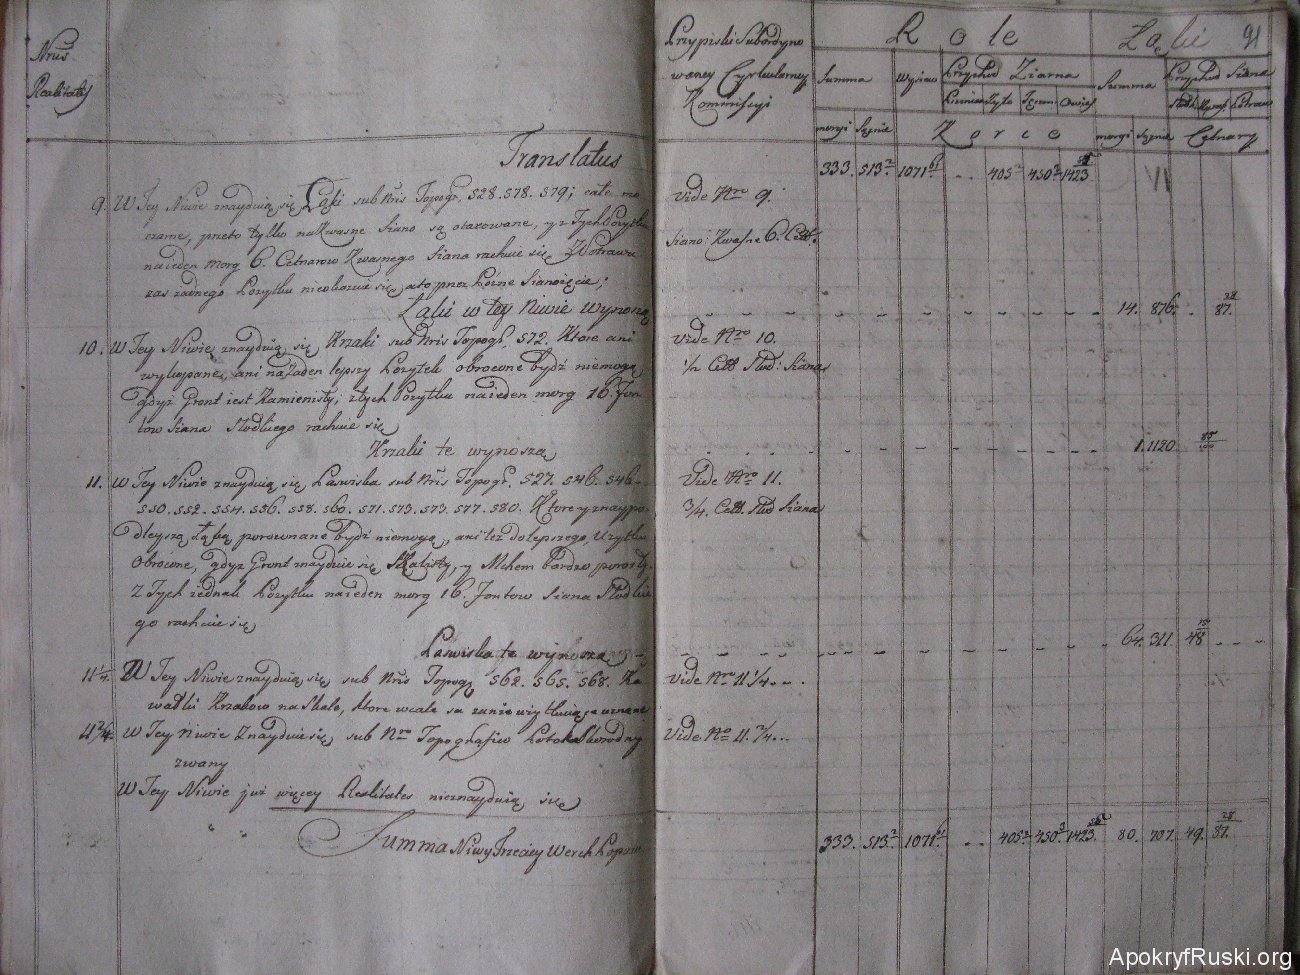 Nrus
Realitatis
Przypiski Subordyno
waney Cyrkularney
Kommissyi
Role
Łąki
91
Summa
Wysiew
Przychod Ziarna
Summa
Przychod Siana
Pszenica Żyto Jęczm: Owies
Słodk: Kwaś: Potraw
morgi Sążnie
Korce
morgi Sążnie
Cetnary
Translatus
333. 513 1071 405 450 1423
9. W Tey Niwie znayduią się Łąki sub Nris Topogr. 528. 578. 579;
czarne, przeto tylko na kwaśne Siano są otaxowane, y z Tych Pożytku
na ieden morg 6. Cetnarow Kwaśnego Siana rachuie się
zas żadnego Pożytku nieokazuie się, a to przez Poźne Sianożęcie;
Łąki w tey Niwie Wynoszą
Vide Nro 9.
Siano: Kwaśne 6. Cett.
14. 876. 87.
10. W Tey Niwie znayduią się Krzaki sub Nris Topogr. 572. Ktore ani
wykopane, ani na żaden lepszy Pożytek obrocone bydź niemogą
gdyż Gront iest Kamienisty; z tych Pożytku na ieden morg 16. Fon
tow Siana Słodkiego rachuie się
Krzaki te wynoszą
Vide Nro 10.
1/2 Cett Słod: Siana
1. 1120.
11. W Tey Niwie znayduią się Paswiska sub Nris Topogr. 527. 546. 548.
550. 552. 554. 556. 558. 560. 571. 573. 573. 577. 580. Ktore
Łąką porownane bydź niemogą, ani też do lepszego Użytku
obrocone, gdyż Gront znayduie się Skalisty, y Mchem bardzo porosły.
Z Tych iednak Pożytku na ieden morg 16. Fontow Siana Słodkie
go rachuie się
Paswiska te wynoszą
Vide Nro 11.
3/4. Cett. Słod Siana
64. 311. 48
11 1/4. W Tey Niwie znayduią się sub Nris Topogr. 562. 565. 568. Ka
wałki Krzakow na Skale, ktore wcale za
Vide Nro 11 1/4.
11 2/4. W Tey Niwie Znayduie się, sub Nro Topografico Potok
zwany
Vide No 11. 2/4.
W Tey Niwie już więcey Realitates nieznayduią się
Summa Niwy Trzeciey
333. 513 1071 405 450 1423. 80. 707. 49. 87.
ApokryfRuski.org